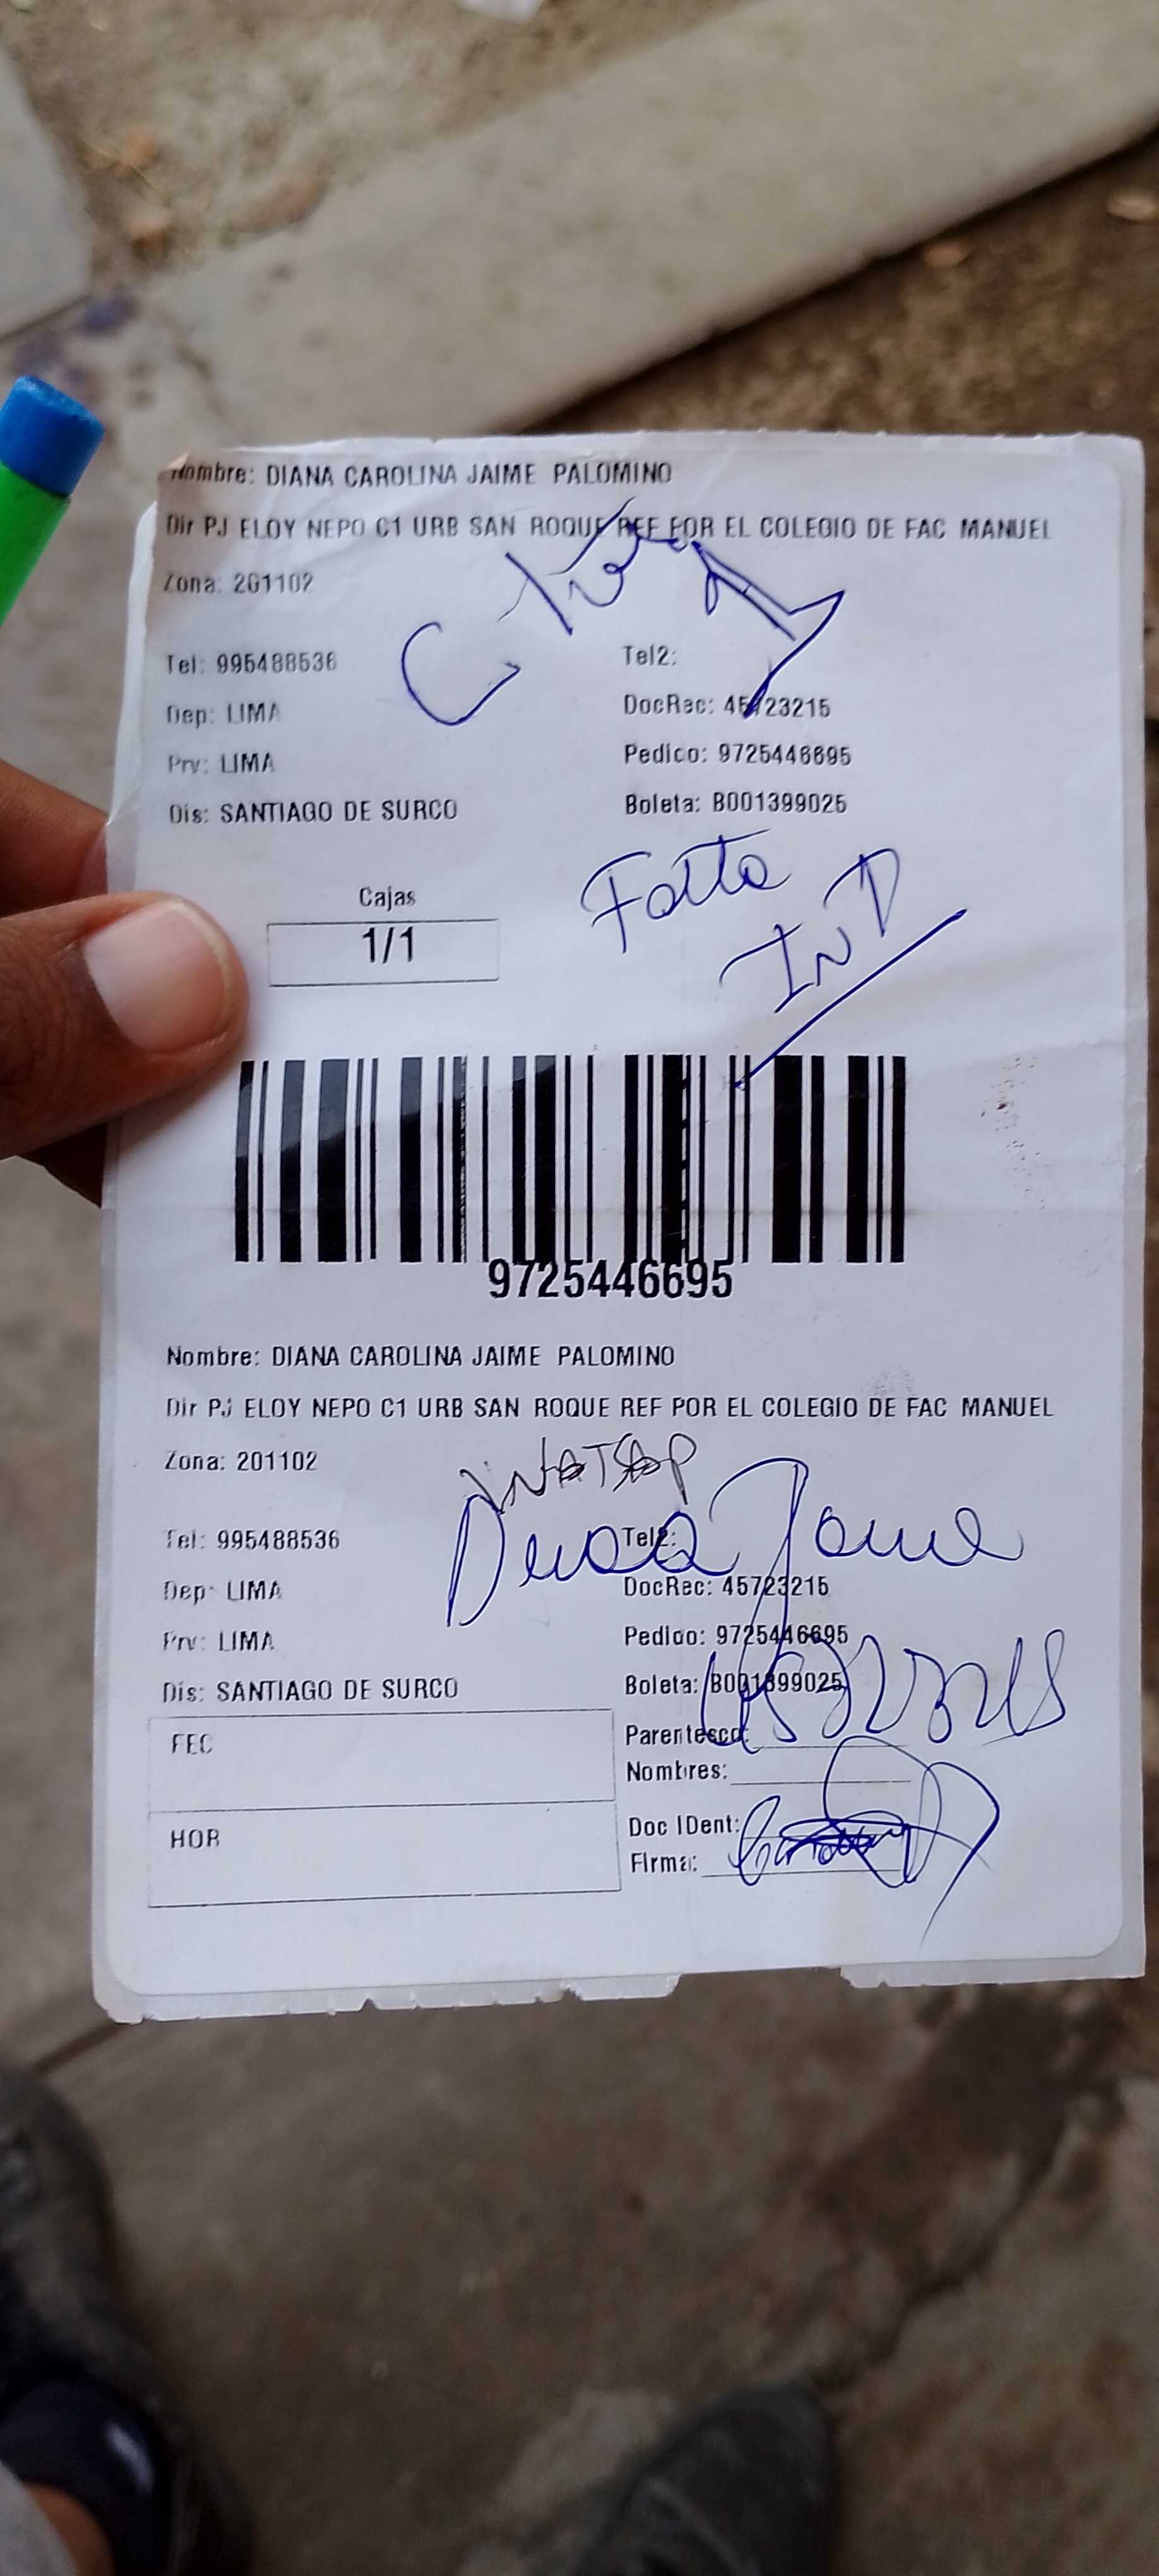 Nombre: DIANA CAROLINA JAIME PALOMINO
Dir PJ ELOY NEPO C1 URB SAN ROQUE REF POR EL COLEGIO DE FAC MANUEL
Zona: 201102
Tel: 995488536
Tel2:
Dep: LIMA
DocRec: 45723215
Prv: LIMA
Pedido: 9725446695
Dis: SANTIAGO DE SURCO
Boleta: B001399025
Falta
Cajas
1/1
9725446695
Nombre: DIANA CAROLINA JAIME PALOMINO
Dir PJ ELOY NEPO C1 URB SAN ROQUE REF POR EL COLEGIO DE FAC MANUEL
Zona: 201102
WATSAP
Diana Jaime
Tel: 995488536
Tel2:
Dep: LIMA
DocRec: 45723215
Prv: LIMA
Pedido: 9725446695
Dis: SANTIAGO DE SURCO
Boleta: B001399025
45723215
FEC
Parentesco:
Nombres:
HOR
Doc IDent:
Firma: